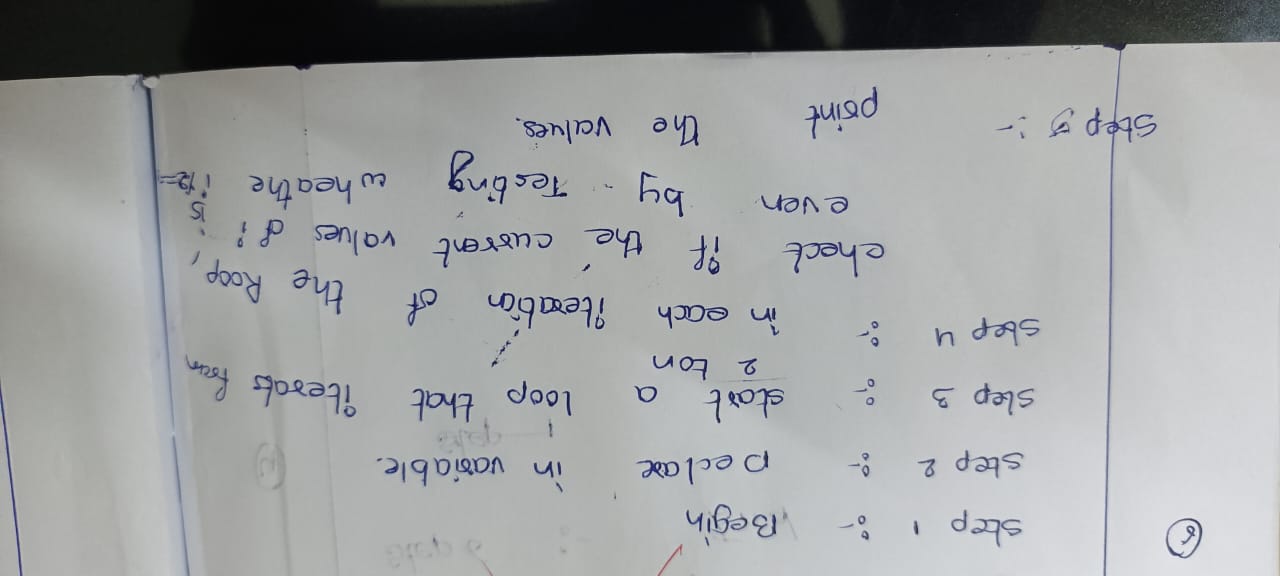 Step 1 :- Begin
Step 2 :- Declare in variable.
Step 3 :- start a loop that iterats from
2 ton
Step 4 :- in each iteration of the loop,
check if the current values of i is
even by Testing wheathe i
Step 5 :- print the values.